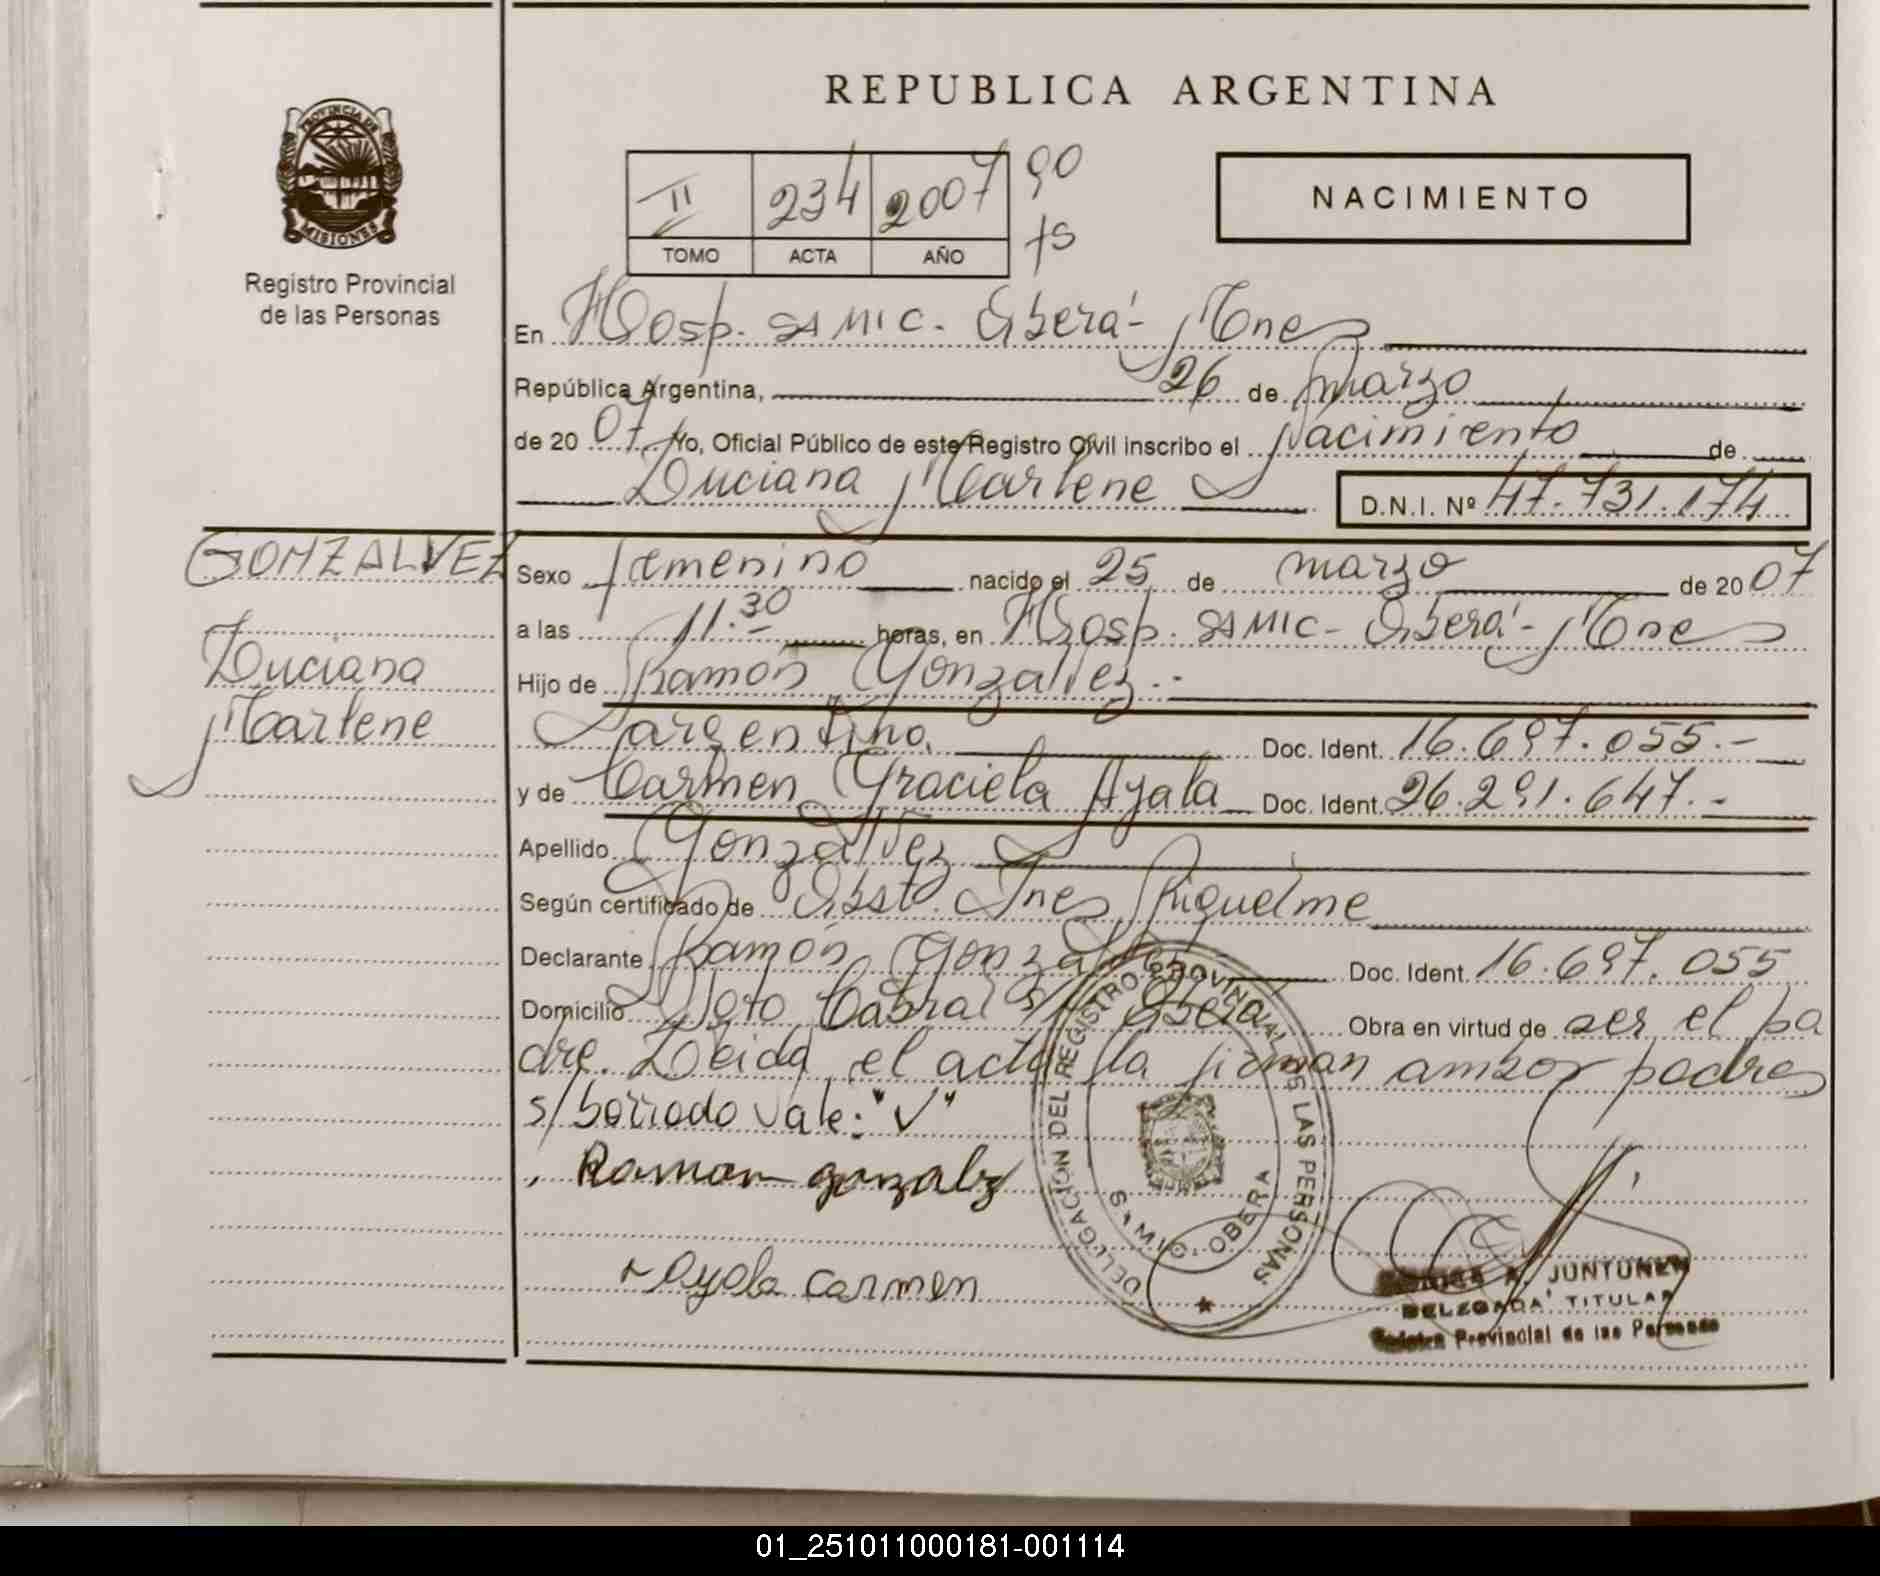 REPUBLICA ARGENTINA
PROVINCIA DE
MISIONES
Registro Provincial
de las Personas
II 234 2007 90
TOMO ACTA AÑO fs
NACIMIENTO
En Hosp. SAMIC. Oberá - Mnes
República Argentina, 26 de marzo
de 20 07 Yo, Oficial Público de este Registro Civil inscribo el Nacimiento de
Luciana Marlene D.N.I. Nº 47.731.174
GONZALVEZ
Luciana
Marlene
Sexo femenino nacido el 25 de marzo de 20 07
a las 11.30 horas, en Hosp. SAMIC - Oberá - Mnes
Hijo de Ramón Gonzalvez.-
argentino Doc. Ident. 16.697.055.-
y de Carmen Graciela Ayala Doc. Ident. 26.291.647.-
Apellido Gonzalvez
Según certificado de Obst. Ines Riquelme
Declarante Ramón Gonzalvez Doc. Ident. 16.697.055
Domicilio Sgto Cabral s/n Oberá Obra en virtud de ser el pa
dre. Leida el acta la firman ambos padres
s/borrado vale: "V"
Ramon gonzalez
Ayala Carmen
DELEGACION DEL REGISTRO PROVINCIAL DE LAS PERSONAS
S.A.M.I.C. OBERA
A. JUNTUNEN
DELEGADA TITULAR
Registro Provincial de las Personas
01_251011000181-001114